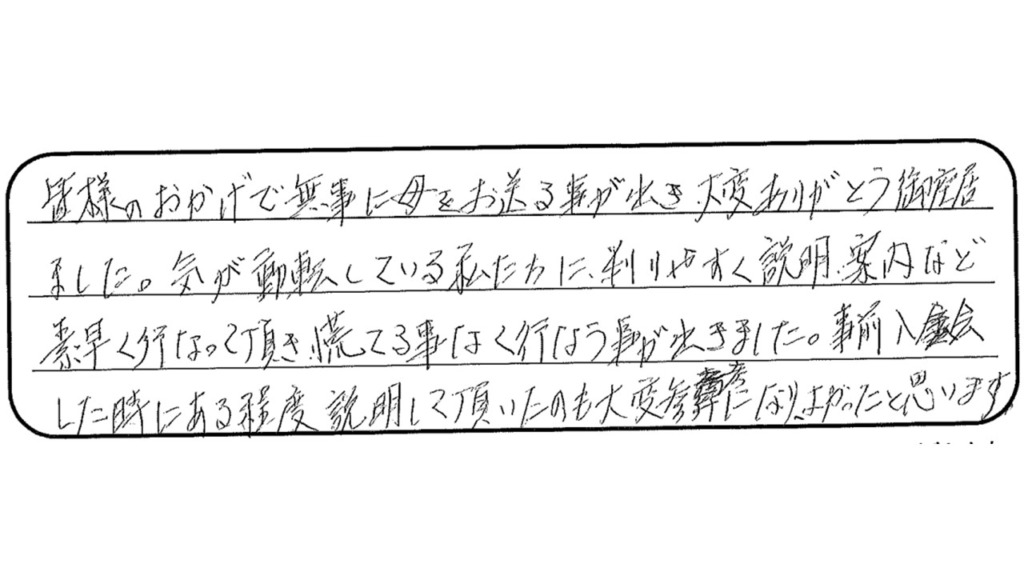 皆様のおかげで無事に母をお送る事が出き、大変ありがとう御座居
ました。気が動転している私たちに、判りやすく説明、案内など
素早く行なって頂き、慌てる事なく行なう事が出きました。事前入会
した時にある程度説明して頂いたのも大変参考になりよかったと思います